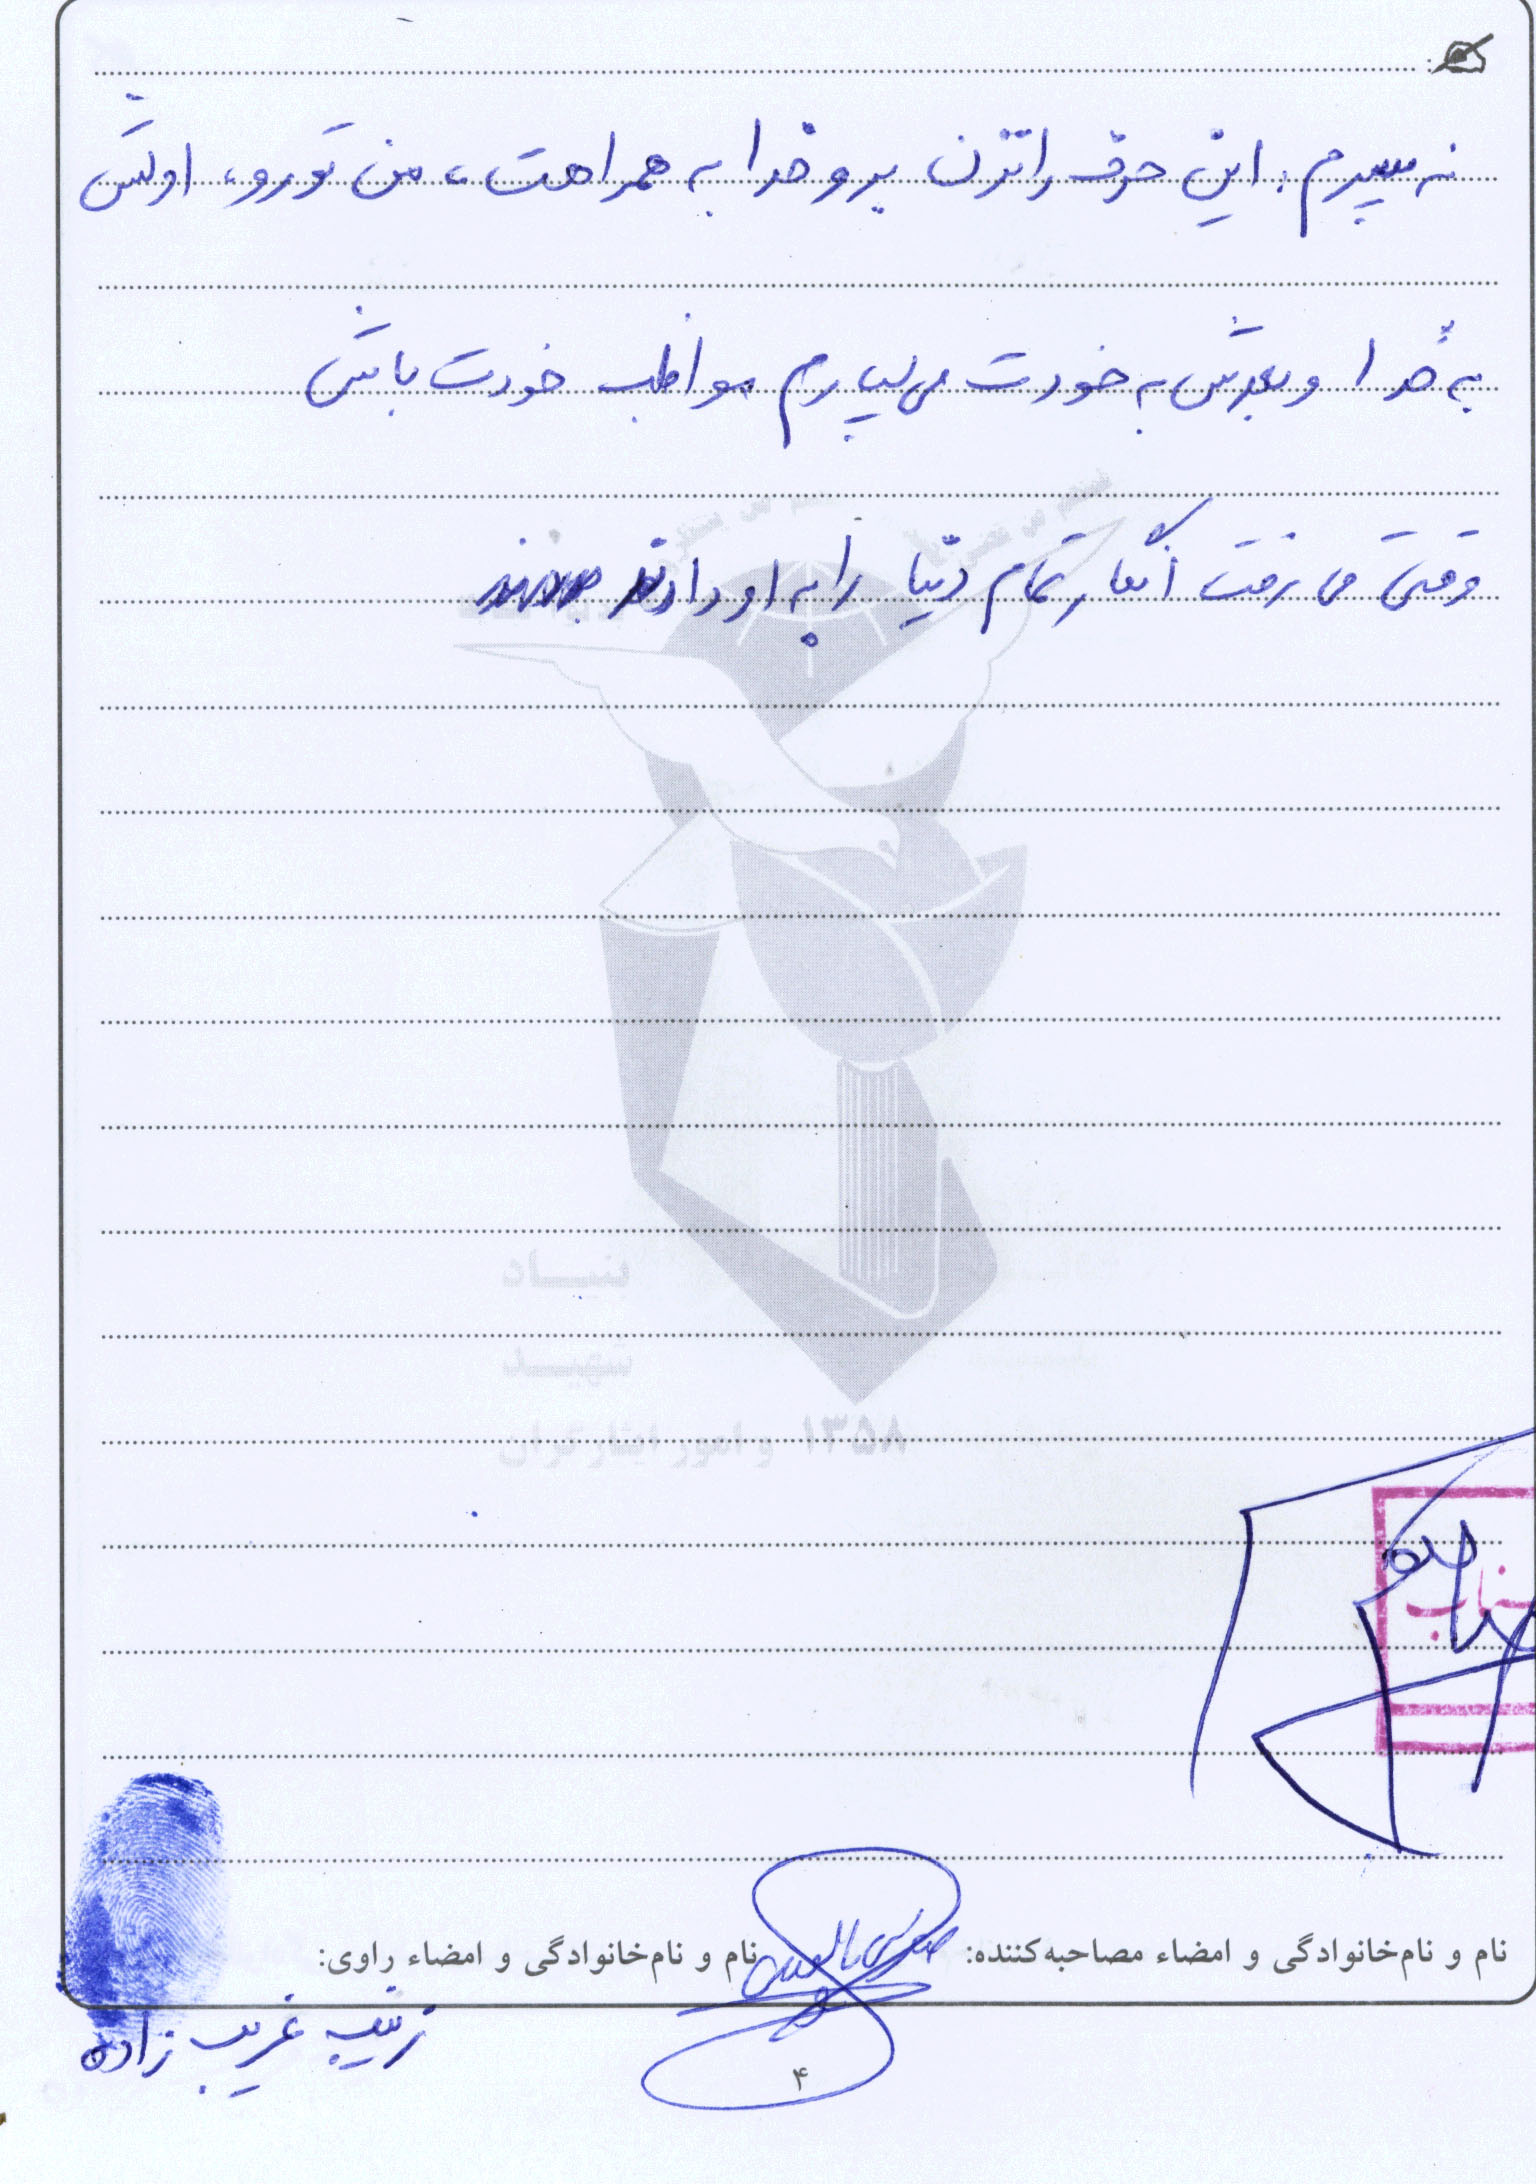 نه پسرم. این حرف را نزن برو خدا به همراهت، من تو رو، اولش
به خدا و بعدش به خودت می سپارم مواظب خودت باش
وقتی می رفت انگار تمام دنیا را به او دادند
بنیاد
شهید
و امور ایثارگران ۱۳۵۸
نام و نام‌خانوادگی و امضاء مصاحبه‌کننده:
نام و نام‌خانوادگی و امضاء راوی:
زینب غریب زاده
۴